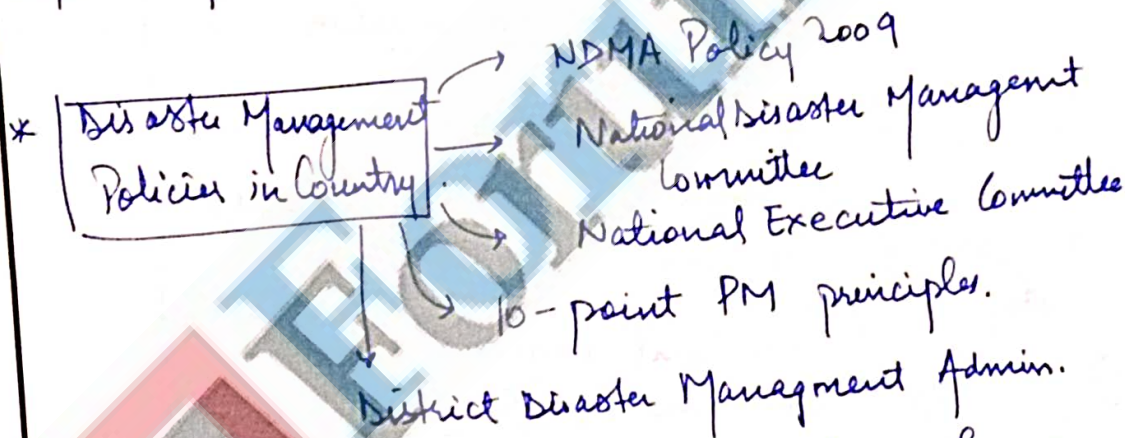 NDMA Policy 2009
* Disaster Management
Policies in Country
National Disaster Managemt
Committee
National Executive Committee
10-point PM principles.
District Disaster Managment Admin.